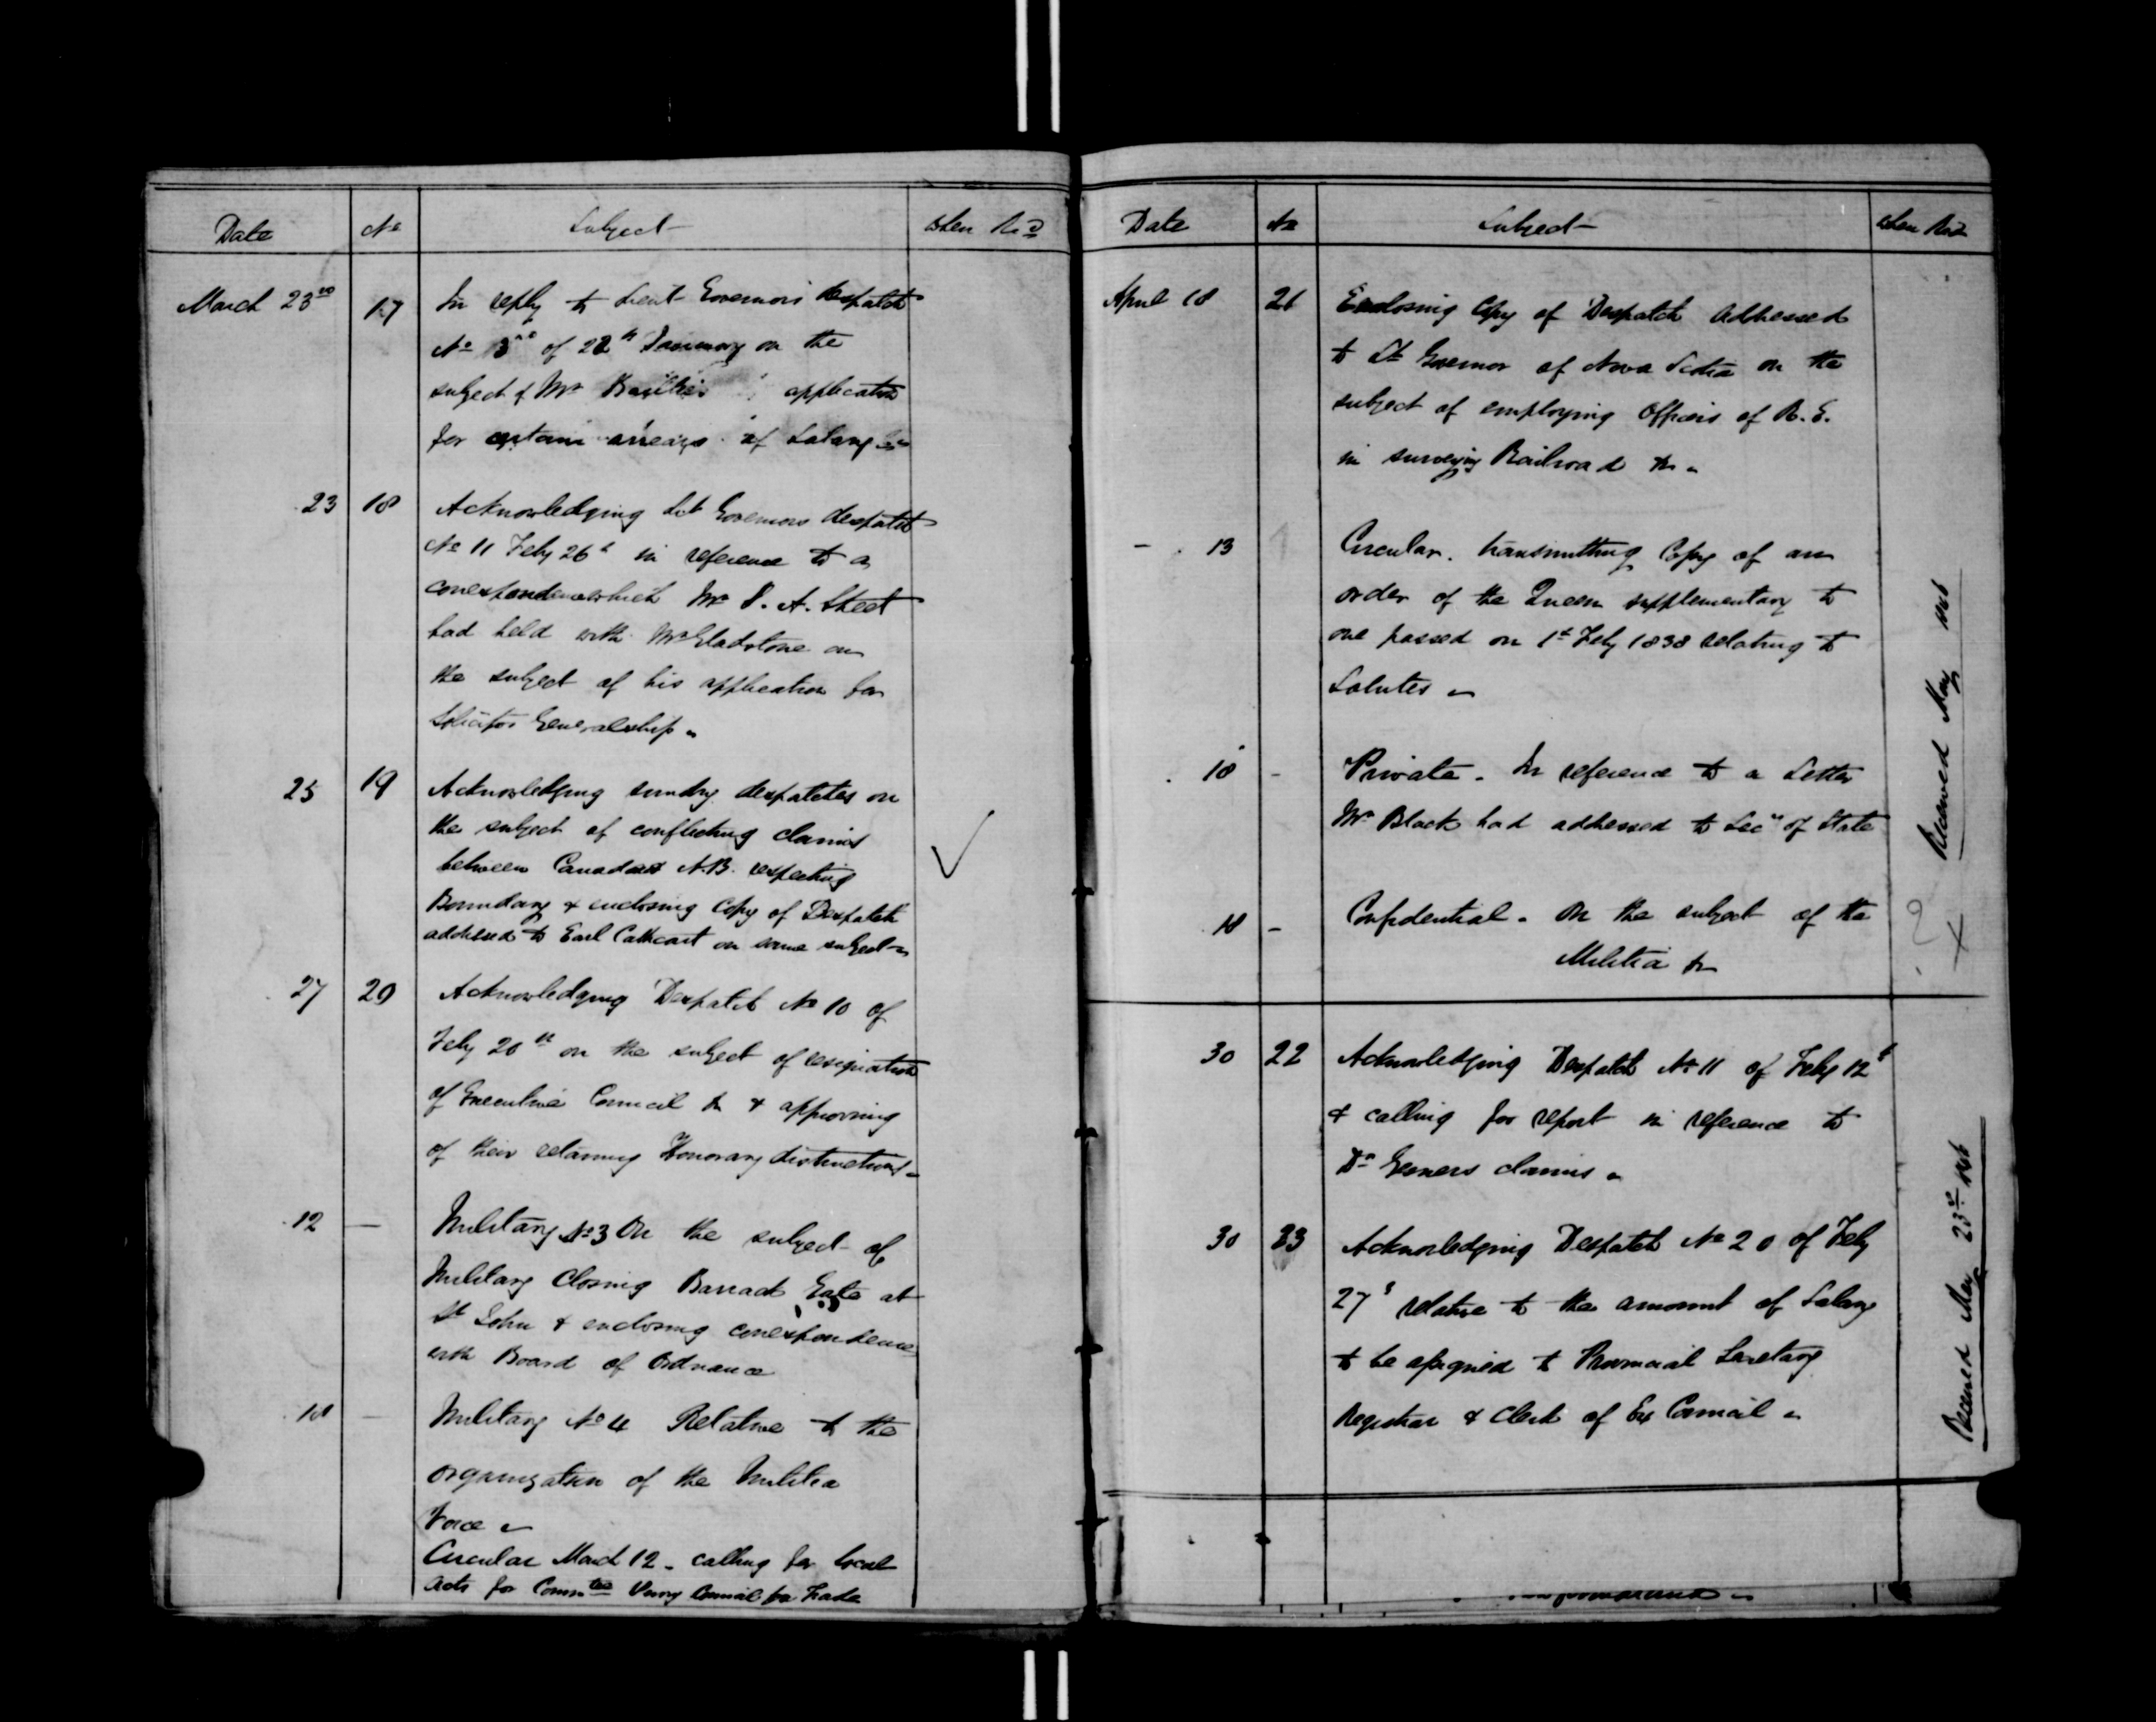 Date No Subject When Recd
March 23rd 17 In reply to Lieut Governors despatch
No 3 of 22th January on the
subject of Mr application
for certain arrears of Salary &c
23 18 Acknowledging Lt Governors despatch
No 11 Feby 26th in reference to a
correspondence which Mr A. Street
had held with Mr Gladstone on
the subject of his application for
Solicitor Generalship.
25 19 Acknowledging sundry despatches on
the subject of conflicting claims
between Canada & N.B. respecting
Boundary & enclosing Copy of Despatch
addressed to Earl Cathcart on same subject
27 20 Acknowledging Despatch No 10 of
Feby 20th on the subject of resignation
of Executive Council &c & approving
of their retaining Honorary distinctions
12 — Military No 3 On the subject of
Military Closing Barrack Gate at
St John & enclosing correspondence
with Board of Ordnance
18 — Military No 4 Relative to the
organization of the Militia
Force
Circular March 12 - calling for Local
Acts for Commtee Privy Council for Trade
Date No Subject When Recd
April 18 21 Enclosing Copy of Despatch addressed
to Lt Governor of Nova Scotia on the
subject of employing Officers of R.E.
in surveying Railroad &c
- 13 Circular. transmitting Copy of an
order of the Queen supplementary to
one passed on 1st Feby 1838 relating to
Salutes
18 - Private - In reference to a Letter
Mr Black had addressed to Secy of State
Received May 1846
18 - Confidential - On the subject of the
Militia &c
? X
30 22 Acknowledging Despatch No 11 of Feby 12th
& calling for report in reference to
Dr Gesners claims
30 23 Acknowledging Despatch No 20 of Feby
27th relative to the amount of Salary
to be assigned to Provincial Secretary
Registrar & Clerk of Ex Council
Received May 23rd 1846